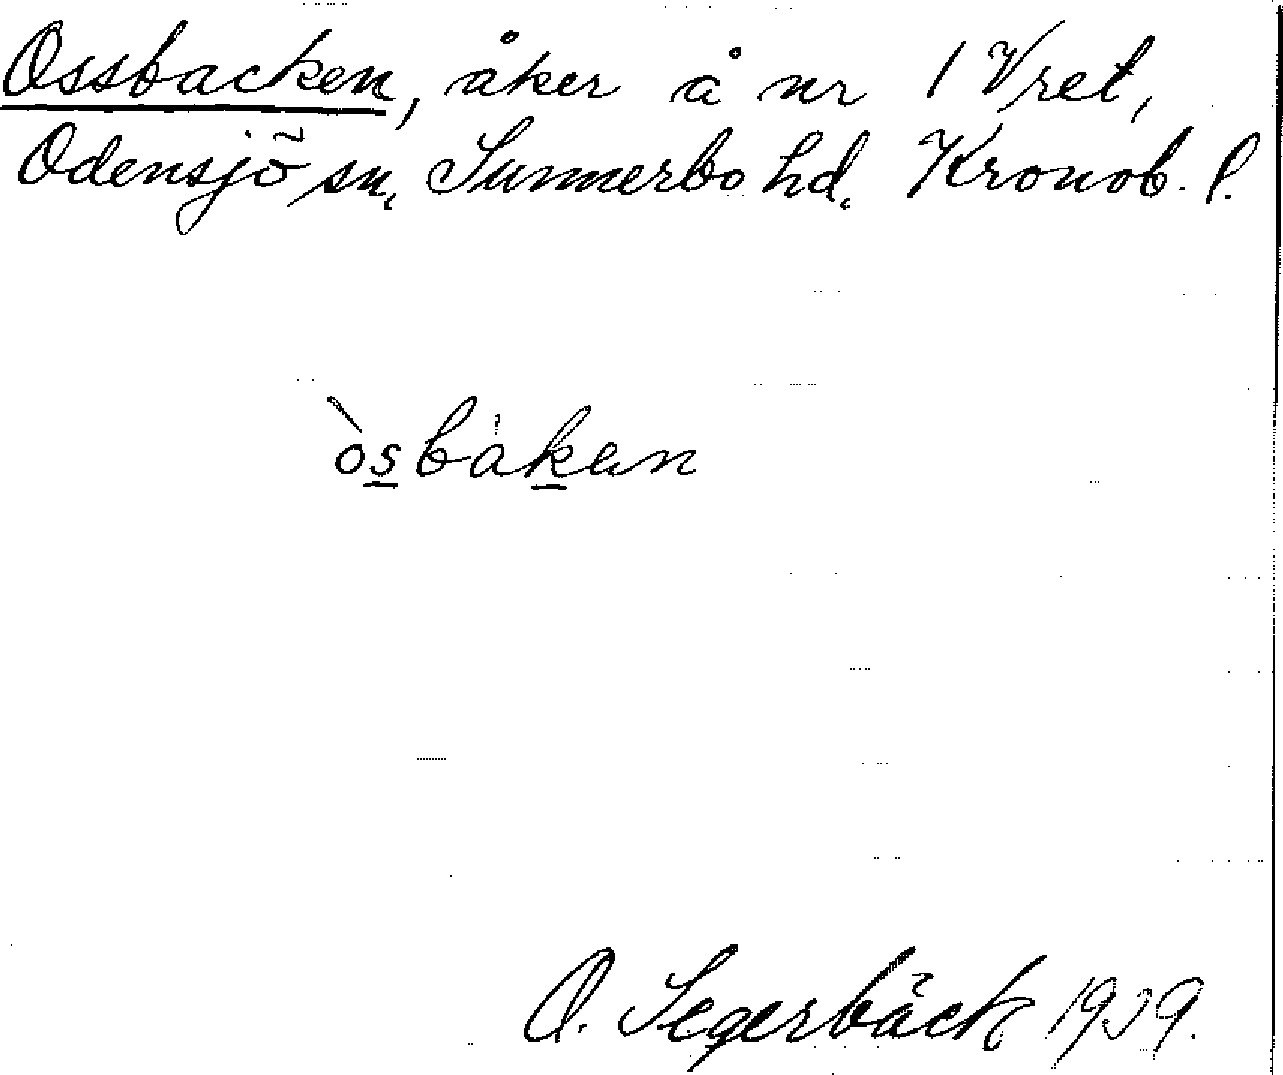 Ossbacken, åker å nr 1 Vret,
Odensjö sn, Sunnerbo hd. Kronob. l.
òs̲bák̲en
O. Segerbäck 1939.